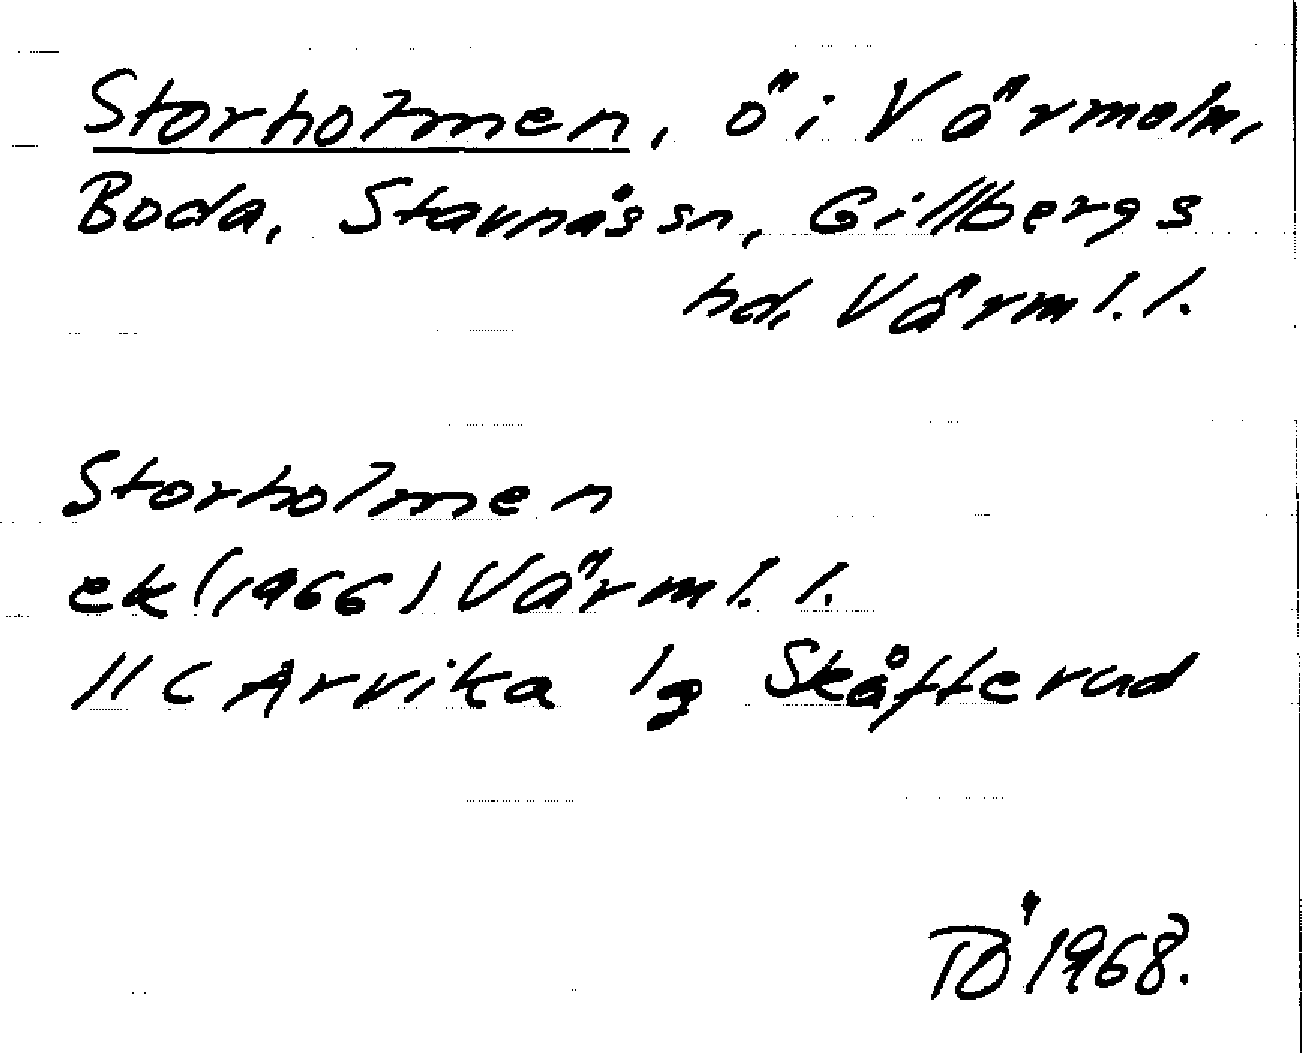 Storholmen, ö i Värmeln,
Boda, Stavnäs sn, Gillbergs
hd, Värml. l.
Storholmen
ek (1966) Värml. l.
11C Arvika 1g Skåfterud
TÖ 1968.